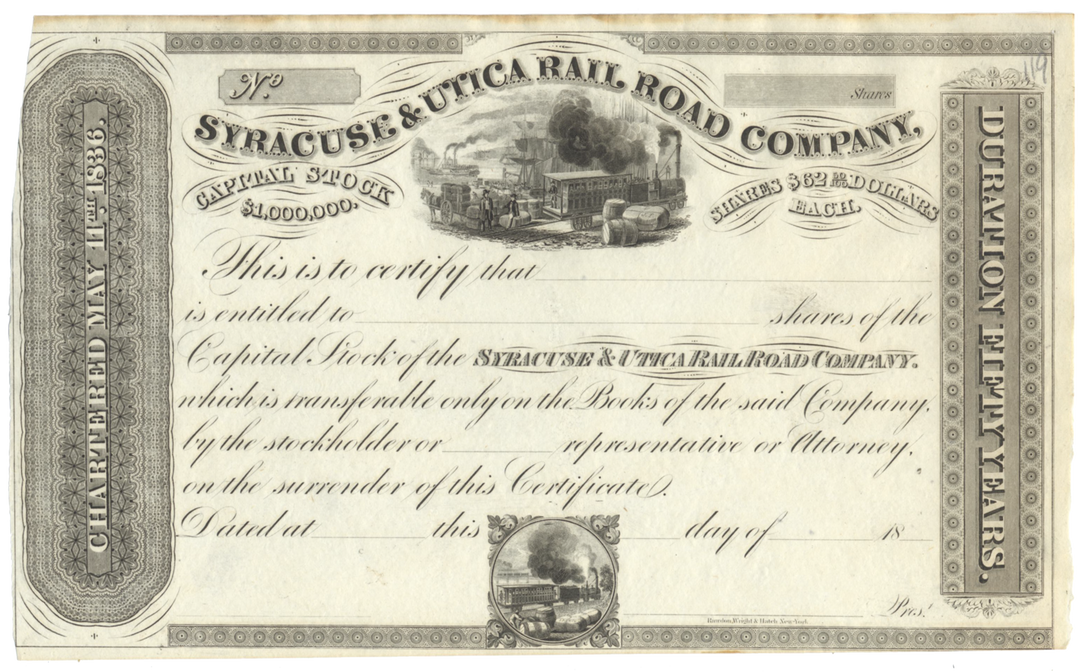 No
Shares
119
SYRACUSE & UTICA RAIL ROAD COMPANY,
CAPITAL STOCK
$1,000,000.
SHARES $62 50/100 DOLLARS
EACH.
CHARTERED MAY 11TH 1836.
DURATION FIFTY YEARS.
This is to certify that
is entitled to shares of the
Capital Stock of the SYRACUSE & UTICA RAIL ROAD COMPANY.
which is transferable only on the Books of the said Company,
by the stockholder or representative or Attorney,
on the surrender of this Certificate.
Dated at this day of 18
Prest
Rawdon, Wright & Hatch, New-York.